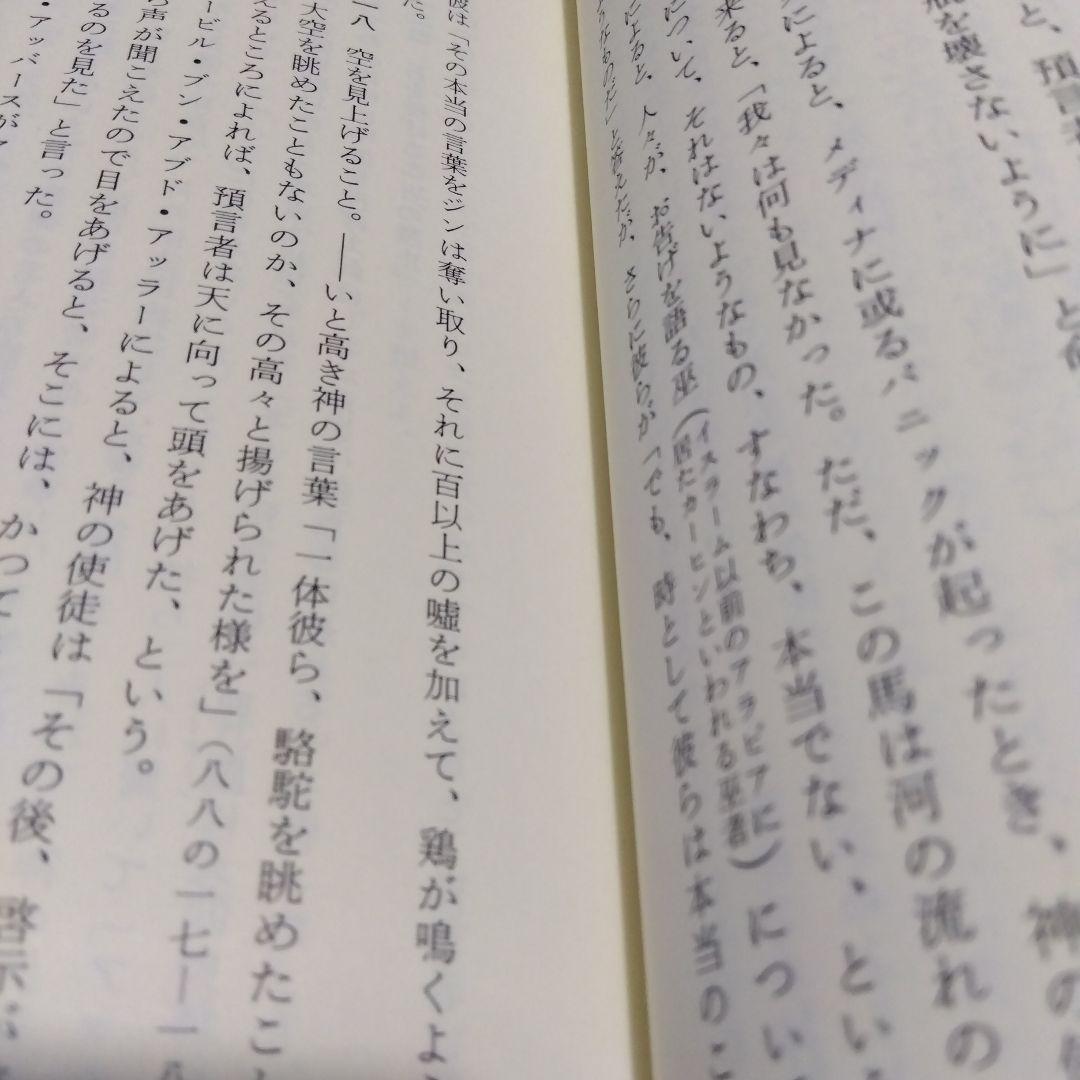 と、預言者
瓶を壊さないように」と
スによると、メディナに或るパニックが起ったとき、神の
来ると、「我々は何も見なかった。ただ、この馬は河の流れの
について、それはないようなもの、すなわち、本当でない、とい
によると、人々が、お告げを語る巫（イスラーム以前のアラビアに居たカーヒンといわれる巫者）につい
うなものだ」と答えたが、さらに彼らが「でも、時として彼らは本当のこ
彼は「その本当の言葉をジンは奪い取り、それに百以上の嘘を加えて、鶏が鳴くよ
た。
一八 空を見上げること。――いと高き神の言葉「一体彼ら、駱駝を眺めたこと
大空を眺めたこともないのか、その高々と揚げられた様を」（八八の一七―一八
えるところによれば、預言者は天に向って頭をあげた、という。
ービル・ブン・アブド・アッラーによると、神の使徒は「その後、啓示が
ら声が聞こえたので目をあげると、そこには、かつて
るのを見た」と言った。
・アッバースが